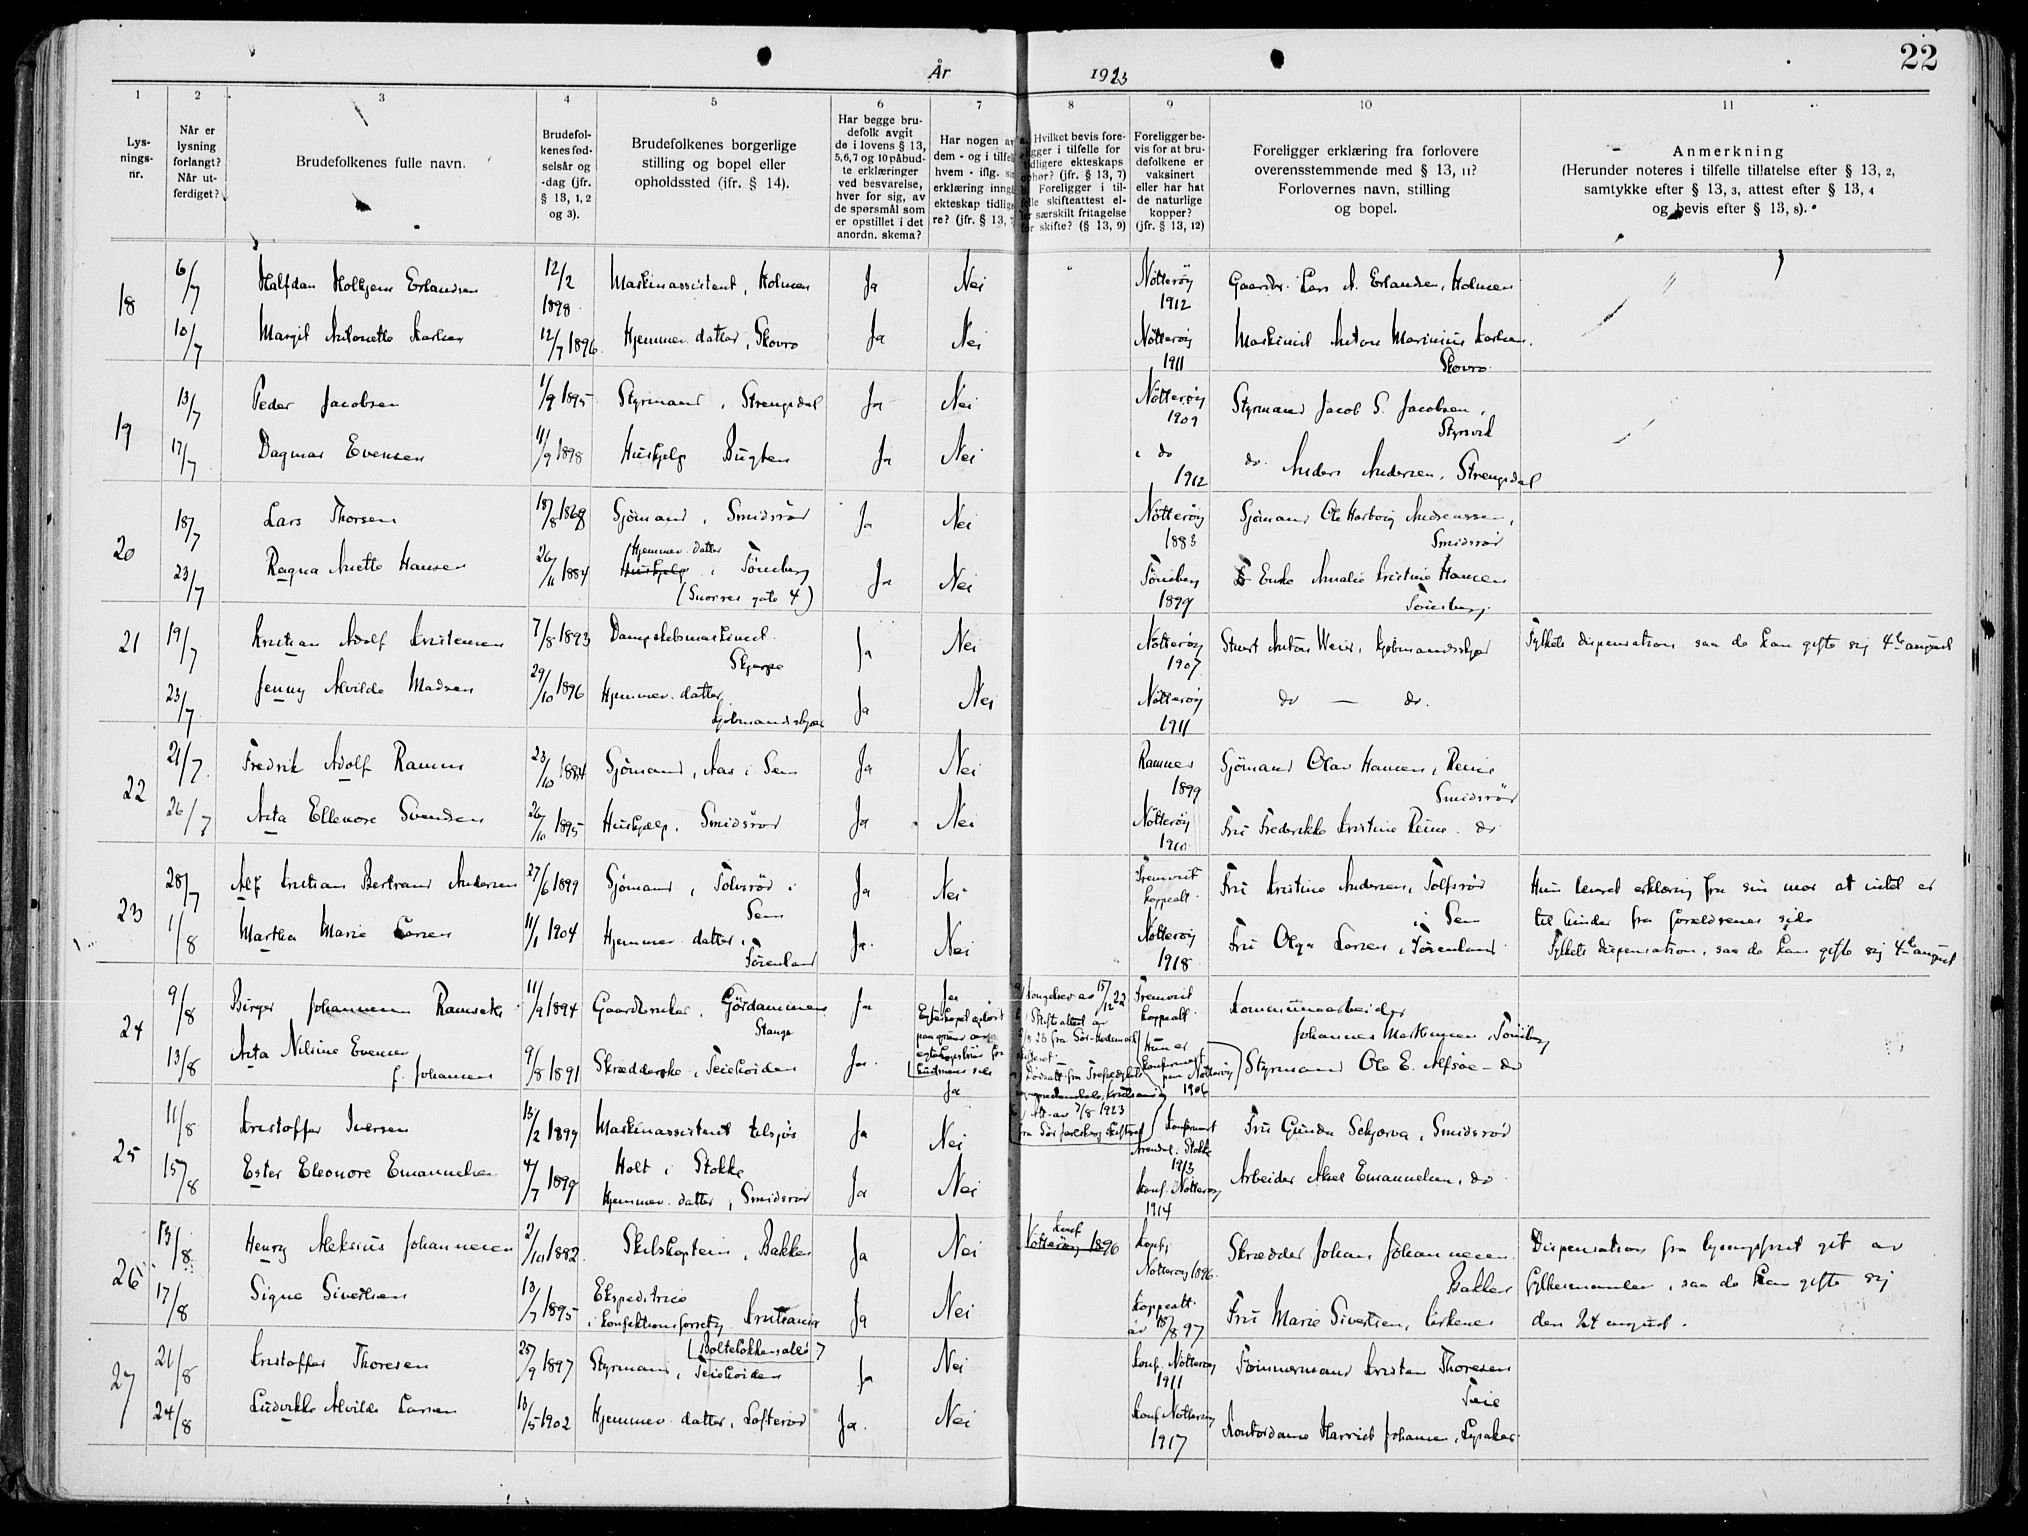 22
År 1923
1 2 3 4 5 6 7 8 9 10 11
Lys-
nings-
nr.
Når er
lysning
forlangt?
Når ut-
ferdiget?
Brudefolkenes fulle navn.
Brudefol-
kenes fød-
selsår og
-dag (jfr.
§ 13, 1, 2
og 3).
Brudefolkenes borgerlige
stilling og bopel eller
opholdssted (jfr. § 14).
Har begge bru-
defolk avgit
de i lovens § 13,
5, 6, 7 og 10 påbud-
te erklæringer
ved besvarelse,
hver for sig, av
de spørsmål som
er opstillet i det
anordn. skema?
Har nogen av
dem - og i tilfel
hvem - iflg. si
erklæring inng
ekteskap tidlig
re? (jfr. § 13, 7
Hvilket bevis fore-
ligger i tilfelle for
tidligere ekteskaps
ophør? (jfr. § 13, 7)
Foreligger i til-
felle skifteattest el-
ler særskilt fritagelse
for skifte? (§ 13, 9)
Foreligger be-
vis for at bru-
defolkene er
vaksinert
eller har hat
de naturlige
kopper?
(jfr. § 13, 12)
Foreligger erklæring fra forlovere
overensstemmende med § 13, 11?
Forlovernes navn, stilling
og bopel.
Anmerkning
(Herunder noteres i tilfelle tillatelse efter § 13, 2,
samtykke efter § 13, 3, attest efter § 13, 4
og bevis efter § 13, 8).
18
6/7 Halfdan Holtjem Erlandsen 12/2 1898 Maskinassistent, Holmen Ja Nei Nötteröy 1912 Gaardbr. Lars A. Erlandsen, Holmen
10/7 Margit Antonette Karlsen 12/7 1896 Hjemmev. datter, Skovro Ja Nei Nötteröy 1911 Maskinist Anton Marinius Karlsen, Skovro
19
13/7 Peder Jacobsen 1/9 1895 Styrmand, Strengsdal Ja Nei Nötteröy 1909 Styrmand Jacob S. Jacobsen, Styrsvik
17/7 Dagmar Evensen 11/9 1898 Hushjelp Bugten Ja Nei do 1912 do. Anders Andersen, Strengsdal
20
18/7 Lars Thorsen 18/8 1868 Sjömand, Smidsröd Ja Nei Nötteröy 1883 Sjömand Ole Hartvig Andreassen, Smidsröd
23/7 Ragna Anette Hansen 26/11 1884 Hjemmev. datter Hushjelp i Tönsberg (Snorres gate 4) Ja Nei Tönsberg 1899 Enke Amalie Kristine Hansen Tönsberg.
21
19/7 Kristian Adolf Kristensen 7/8 1893 Dampskibsmaskinist Ja Nei Nötteröy 1907 Stuert Anton Weier, Kjöbmandsskjær Fylkets dispensation saa de kan gifte sig 4de august
23/7 Jenny Alvilde Madsen 29/10 1896 Hjemmev. datter Kjöbmandsskjær Ja Nei Nötteröy 1911 do — do.
22
21/7 Fredrik Adolf Ramm 23/10 1884 Sjömand, Aas i Sem Ja Nei Ramnes 1899 Sjömand Olav Hansen, Smidsröd
26/7 Asta Ellenore Svendsen 26/10 1895 Hushjælp, Smidsröd Ja Nei Nötteröy 1910 Fru Frederikke Kristine do
23
28/7 Alf Kristian Bertrand Andersen 27/6 1899 Sjömand, Tolvsröd i Sem Ja Nei Fremvist koppeatt. Fru Kristine Andersen, Tolfsröd i Sem Hun leveret erklæring fra sin mor at intet er til hinder fra forældrenes side
1/8 Martha Marie Larsen 11/1 1904 Hjemmev. datter, Ja. Nei Nötteröy 1918 Fru Olga Larsen, Fylkets dispensation, saa de kan gifte sig 4de august
24
9/8 Birger Johannesen Ramsæth 11/9 1894 Gaardbruker, Gjördammen Stange Ja Ja Kongebrev av 15/12 22 Skifteattest av fra Sör-Hedemark Fremvist koppeatt. Kommunearbeider Johannes Martinsen, Tönsberg
13/8 Asta Nilsine Evensen f. Johansen 9/8 1891 Skrædderske, Teiehöiden Ja. Ja av 7/8 1923 fra Sör Jarlsberg skifteret Hun er konfirmert paa Nötteröy 1906 Styrmand Ole E. Alfsöe - do
25
11/8 Kristoffer Iversen 13/2 1899 Maskinassistent tilsjös Holt i Stokke Ja Nei Konfirmert Arendal. Stokke 1913 Fru Gunda Schjerva, Smidsröd
15/8 Ester Eleonore Emanuelsen 4/7 1899 Hjemmev. datter, Smidsröd Ja Nei Konf. Nötteröy 1914 Arbeider Aksel Emanuelsen, do
26
13/8 Henry Aleksius Johannesen 2/10 1882 Skibskaptein, Bakken Ja Nei Konf Nötteröy 1896 Konf. Nötteröy 1896 Skrædder Johan Johannesen Bakken Dispensation fra lysningsfrist git av fylkesmanden, saa de kan gifte sig den 24 august.
17/8 Signe Sivertsen 13/7 1895 Ekspeditrice i konfektionsforretn. Kristiania (Bolteløkkens alle 7 Ja Nei Koppeatt. av 18/8 97 Fru Marie Sivertsen, Kirkenes
27
21/8 Kristoffer Thoresen 25/9 1897 Styrmand, Teiehöiden Ja Nei Konf. Nötteröy 1911 Tömmermand Kristen Thoresen Teie
24/8 Ludvikke Alvilde Larsen 18/5 1902 Hjemmev. datter, Lofteröd Ja. Nei Konf. Nötteröy 1917 Kontordame Harriet Johansen, Lysaker